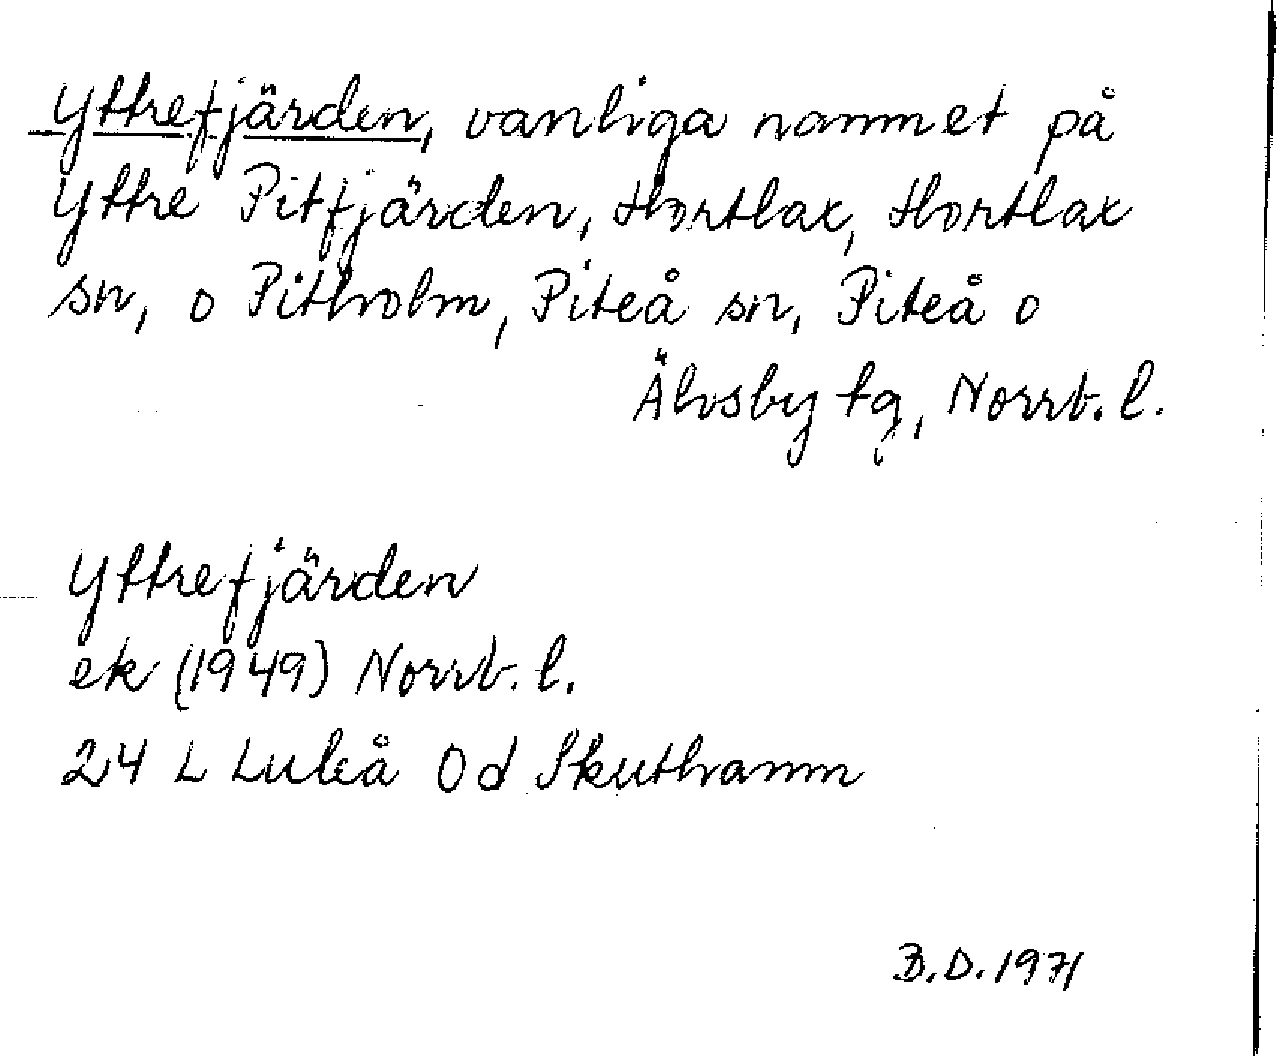 Yttrefjärden, vanliga namnet på
Yttre Pitfjärden, Hortlax, Hortlax
sn, o Pitholm, Piteå sn, Piteå o
Älvsby tg, Norrb. l.
Yttrefjärden
ek (1949) Norrb. l.
24 L Luleå 0d Skuthamn
B.D. 1971